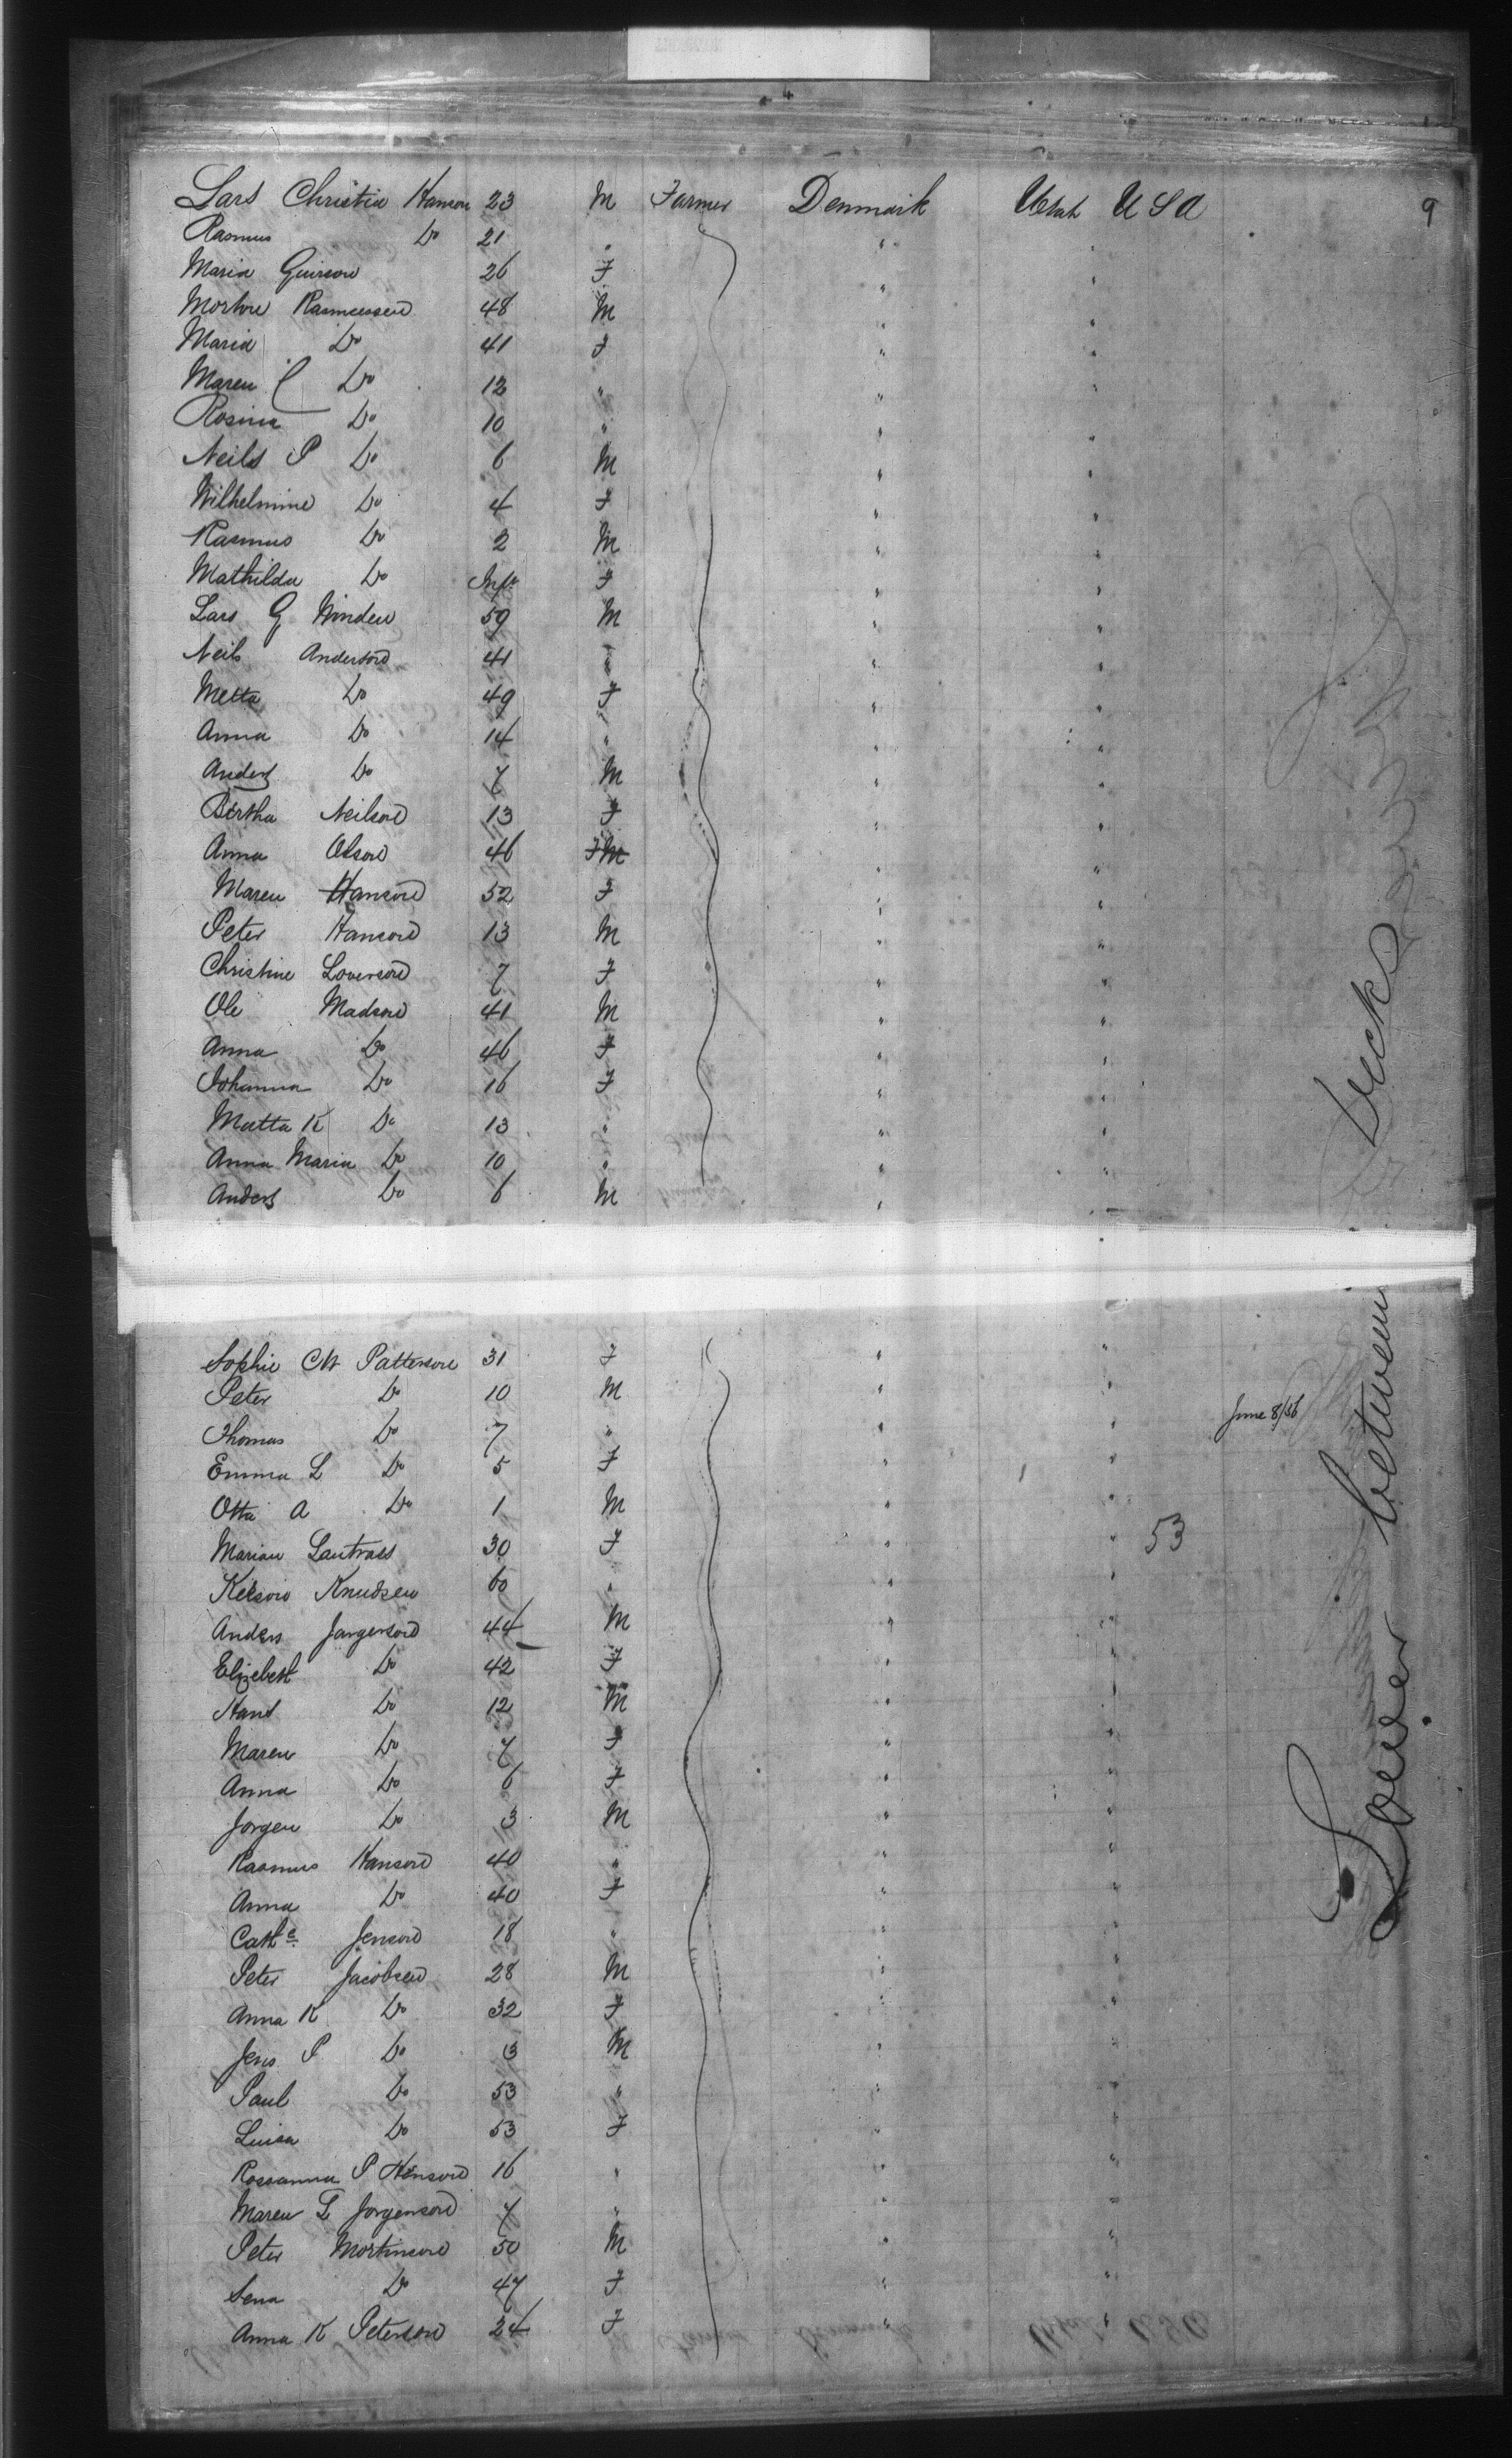 9
Lars Christia Hanson 23 M Farmer Denmark Utah U S A
Rasmus Do 21 " " "
Maria 26 F " "
Morten Rasmussen 48 M " "
Maria Do 41 F " "
Maren C Do 12 " " "
Rosina Do 10 " " "
Neils P Do 6 M " "
Wilhelmine Do 4 F " "
Rasmus Do 2 M " "
Mathilda Do Inft F " "
Lars G Winden 59 M " "
Neils Anderson 41 " " "
Metta Do 49 F " "
Anna Do 14 " " "
Anders Do 7 M " "
Bertha Neilson 13 F " "
Anna Olson 46 F M " "
Maren Hanson 52 F " "
Peter Hanson 13 M " "
Christine Loverson 7 F " "
Ole Madson 41 M " "
Anna Do 46 F " "
Johanna Do 16 F " "
Matta K Do 13 " " "
Anna Maria Do 10 " " "
Anders Do 6 M " "
Sophie CM Patterson 31 F " "
Peter Do 10 M " "
Thomas Do 7 " " " June 8/56
Emma L Do 5 F " "
Otto A Do 1 M " "
Marian 30 F " " 53
Knudsen 60 " " "
Anders Jorgenson 44 M " "
Elizebeth Do 42 F " "
Hans Do 12 M " "
Maren Do 7 F " "
Anna Do 6 F " "
Jorgen Do 3 M " "
Rasmus Hanson 40 " " "
Anna Do 40 F " "
Cathe Jenson 18 " " "
Peter Jacobsen 28 M " "
Anna K Do 32 F " "
Jens P Do 3 M " "
Paul Do 53 " " "
Luisa Do 53 F " "
Rossanna P Hanson 16 " " "
Maren L Jorgenson 7 " " "
Peter Mortinson 50 M " "
Sena Do 47 F " "
Anna K Peterson 24 F " "
Lower between Decks